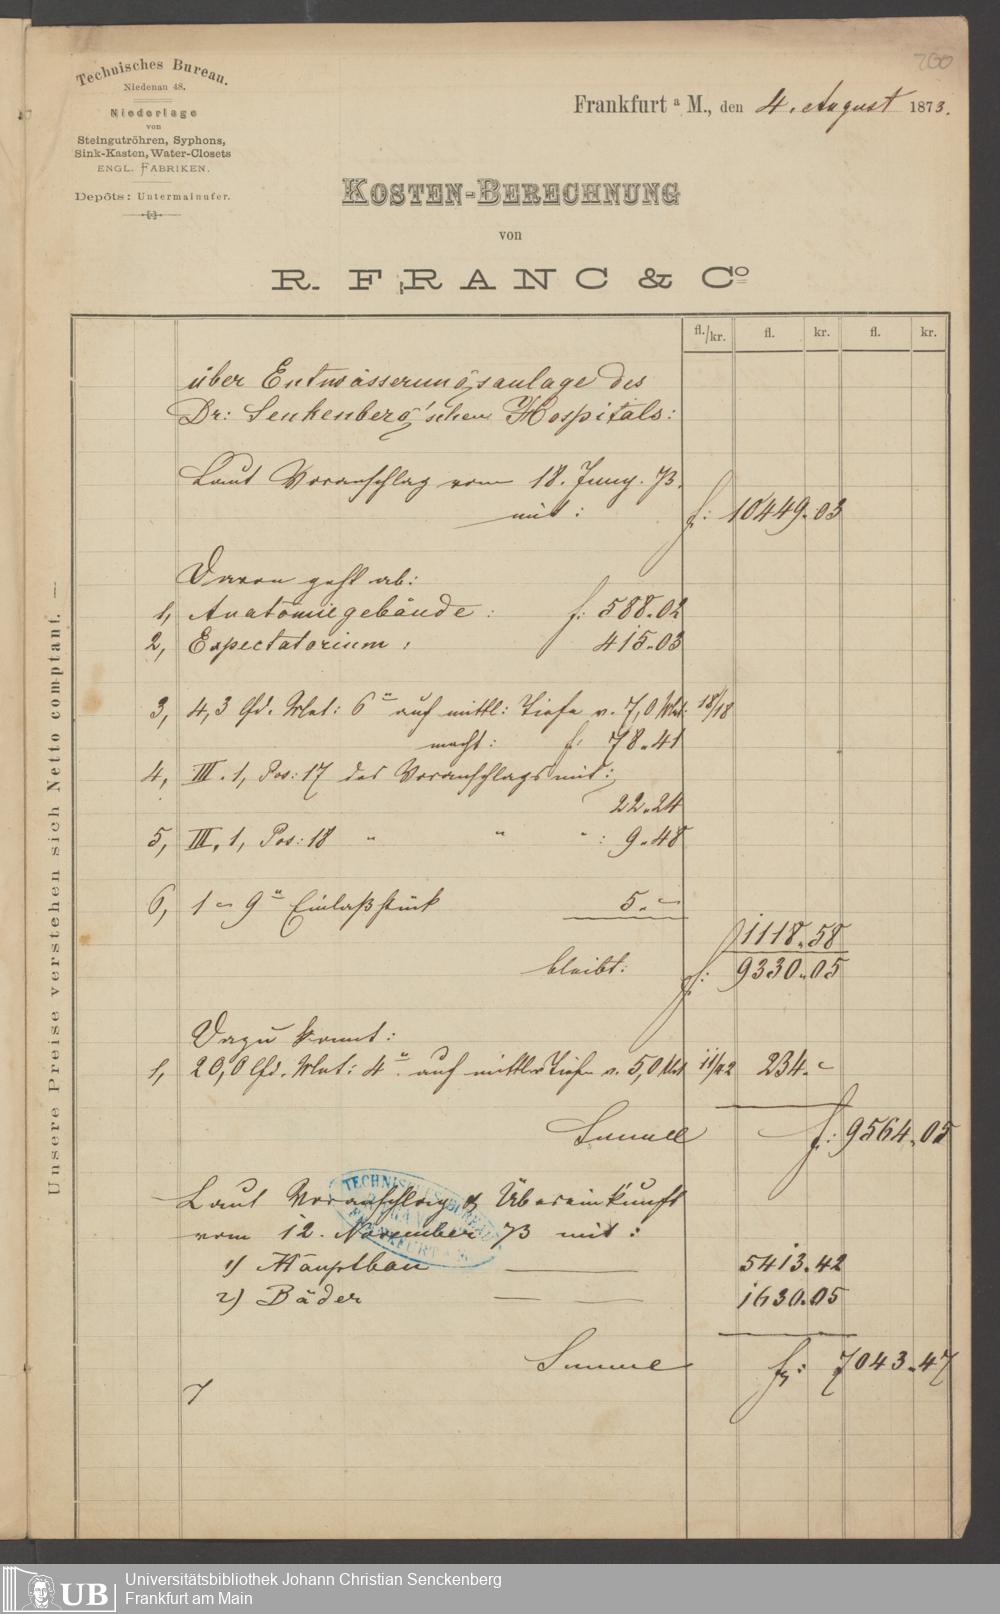 200
Technisches Bureau.
Niedenau 48.
Niederlage
von
Steingutröhren, Syphons,
Sink-Kasten, Water-Closets
ENGL. FABRIKEN.
Depôts: Untermainufer.
Frankfurt a M., den 4. August 1873.
KOSTEN-BERECHNUNG
von
R. FRANC & Co
fl./kr. fl. kr. fl. kr.
über Entwässerungsanlage des
Dr: Senkenberg'schen Hospitals:
Laut Voranschlag vom 18. Juny. 73.
mit: f: 10449.03
Davon geht ab:
1, Anatomiegebäude: f: 588.02
2, Expectatorium: 415.03
3, 4,3 lfd. Met: 6" auf mittl: Tiefe v. 7,0 Met: 18/18
macht: f: 78.41
4, III. 1, Pos: 17 des Voranschlags mit:
22.24
5, III. 1, Pos: 18 " " " : 9.48
6, 1 - 9" Einlaßstück 5.-
1118.58
bleibt: f: 9330.05
Dazu kommt:
1, 20,0 lfd. Met: 4" auf mittlr Tiefe v. 5,0 Met 11/42 234.-
Summe f: 9564.05
Laut Voranschlag & Übereinkunft
vom 12. November 73 mit:
1) Hauptbau 5413.42
2) Bäder 1630.05
Summe f: 7043.47
Unsere Preise verstehen sich Netto comptant. —
TECHNISCHES BUREAU
FRANKFURT
UB
Universitätsbibliothek Johann Christian Senckenberg
Frankfurt am Main